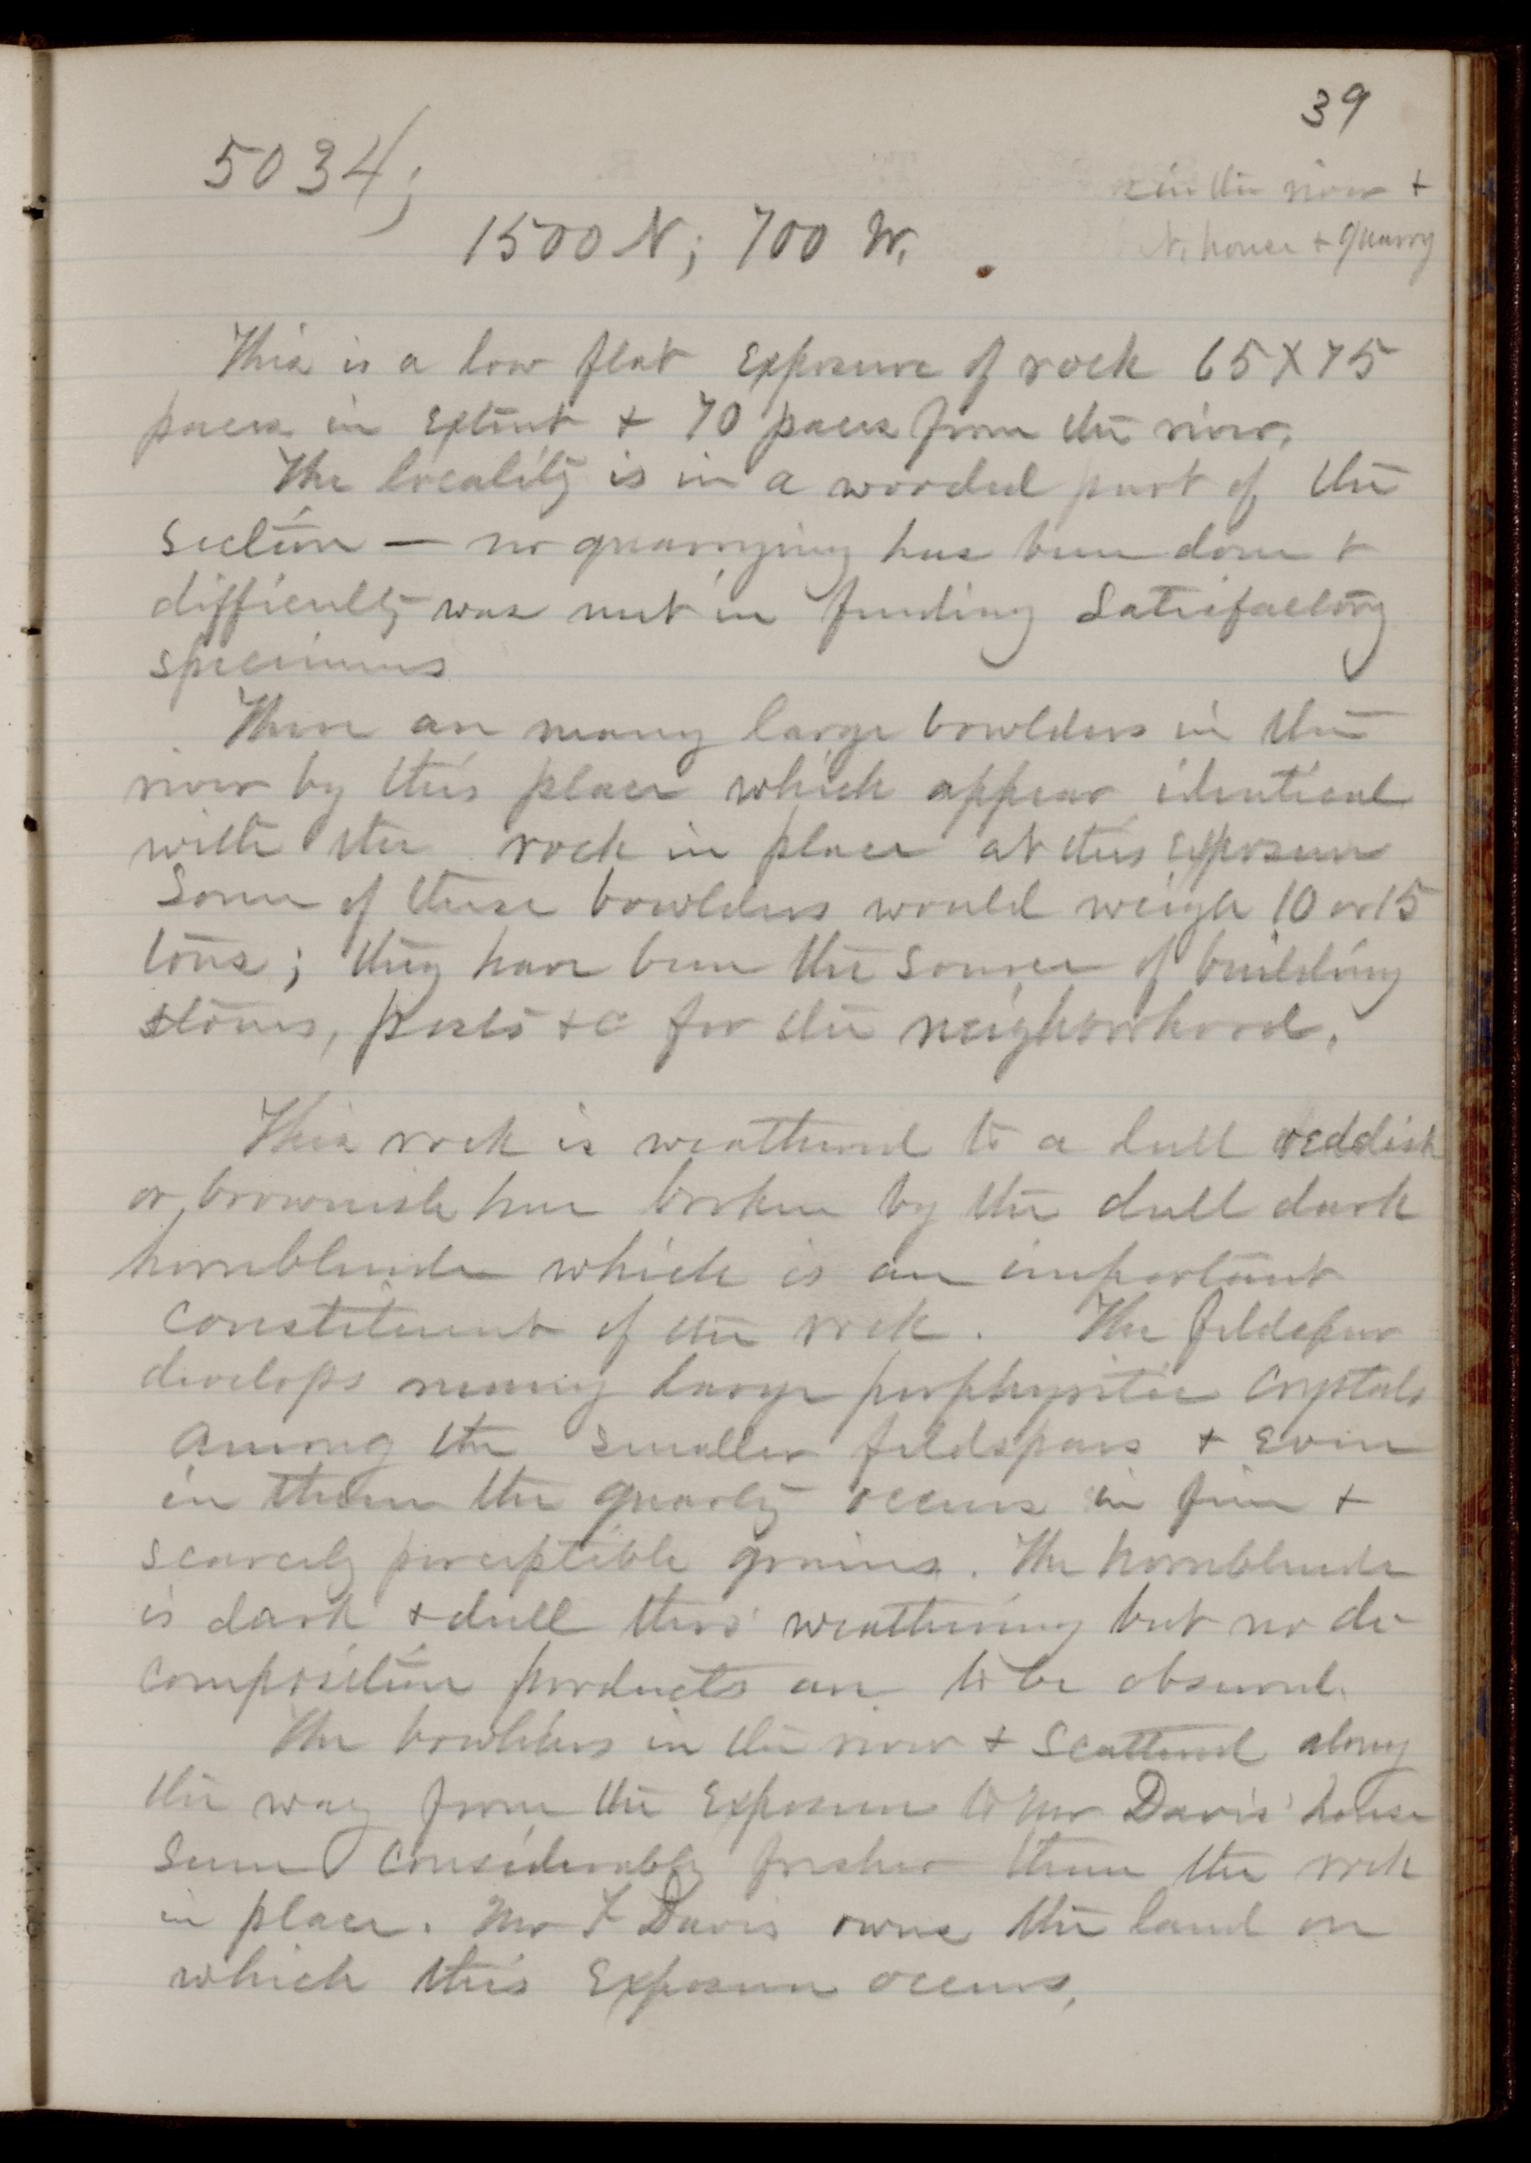 39
5034;
in the river +
N. house + quarry
1500 N; 700 W.
This is a low flat exposure of rock 65 X 75
paces in extent + 70 paces from the river.
The locality is in a wooded part of the
section — no quarrying has been done +
difficulty was met in finding satisfactory
specimens
There are many large bowlders in the
river by this place which appear identical
with the rock in place at this exposure
Some of these bowlders would weigh 10 or 15
tons; they have been the source of building
stones, posts &c for the neighborhood.
This rock is weathered to a dull reddish
or brownish hue broken by the dull dark
hornblende which is an important
constituent of the rock. The feldspar
develops many large porphyritic crystals
among the smaller feldspars + even
in them the quartz occurs in fine +
scarcely perceptible grains. The hornblende
is dark + dull thro' weathering but no de-
composition products are to be observed.
The bowlders in the river + scattered along
the way from the exposure to Mr Davis' house
seem considerably fresher than the rock
in place. Mr F Davis owns the land on
which this exposure occurs.